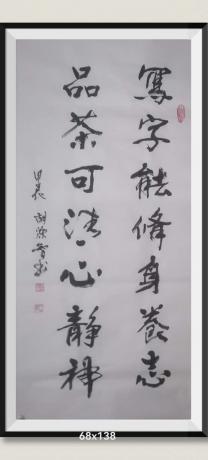 寫字能修身養志
品茶可清心靜神
甲辰
68x138